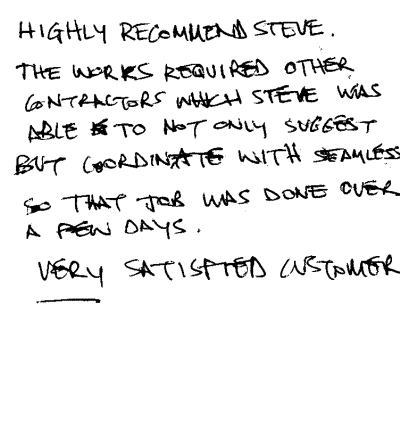 HIGHLY RECOMMEND STEVE.
THE WORKS REQUIRED OTHER
CONTRACTORS WHICH STEVE WAS
ABLE TO NOT ONLY SUGGEST
BUT COORDINATE WITH SEAMLESS
SO THAT JOB WAS DONE OVER
A FEW DAYS.
VERY SATISFIED CUSTOMER